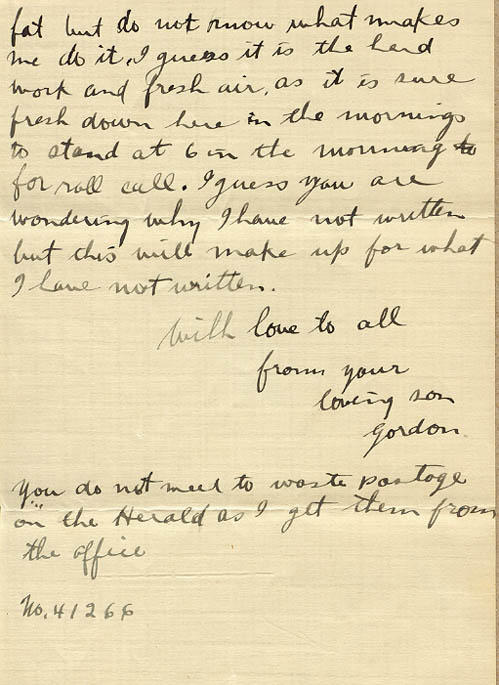 fat but do not know what makes
me do it. I guess it is the hard
work and fresh air, as it is sure
fresh down here in the mornings
to stand at 6 in the mornning to
for roll call. I guess you are
wondering why I have not written
but this will make up for what
I have not written.
With love to all
from your
loving son
Gordon.
You do not need to waste postage
on the Herald as I get them from
the office
No. 41266